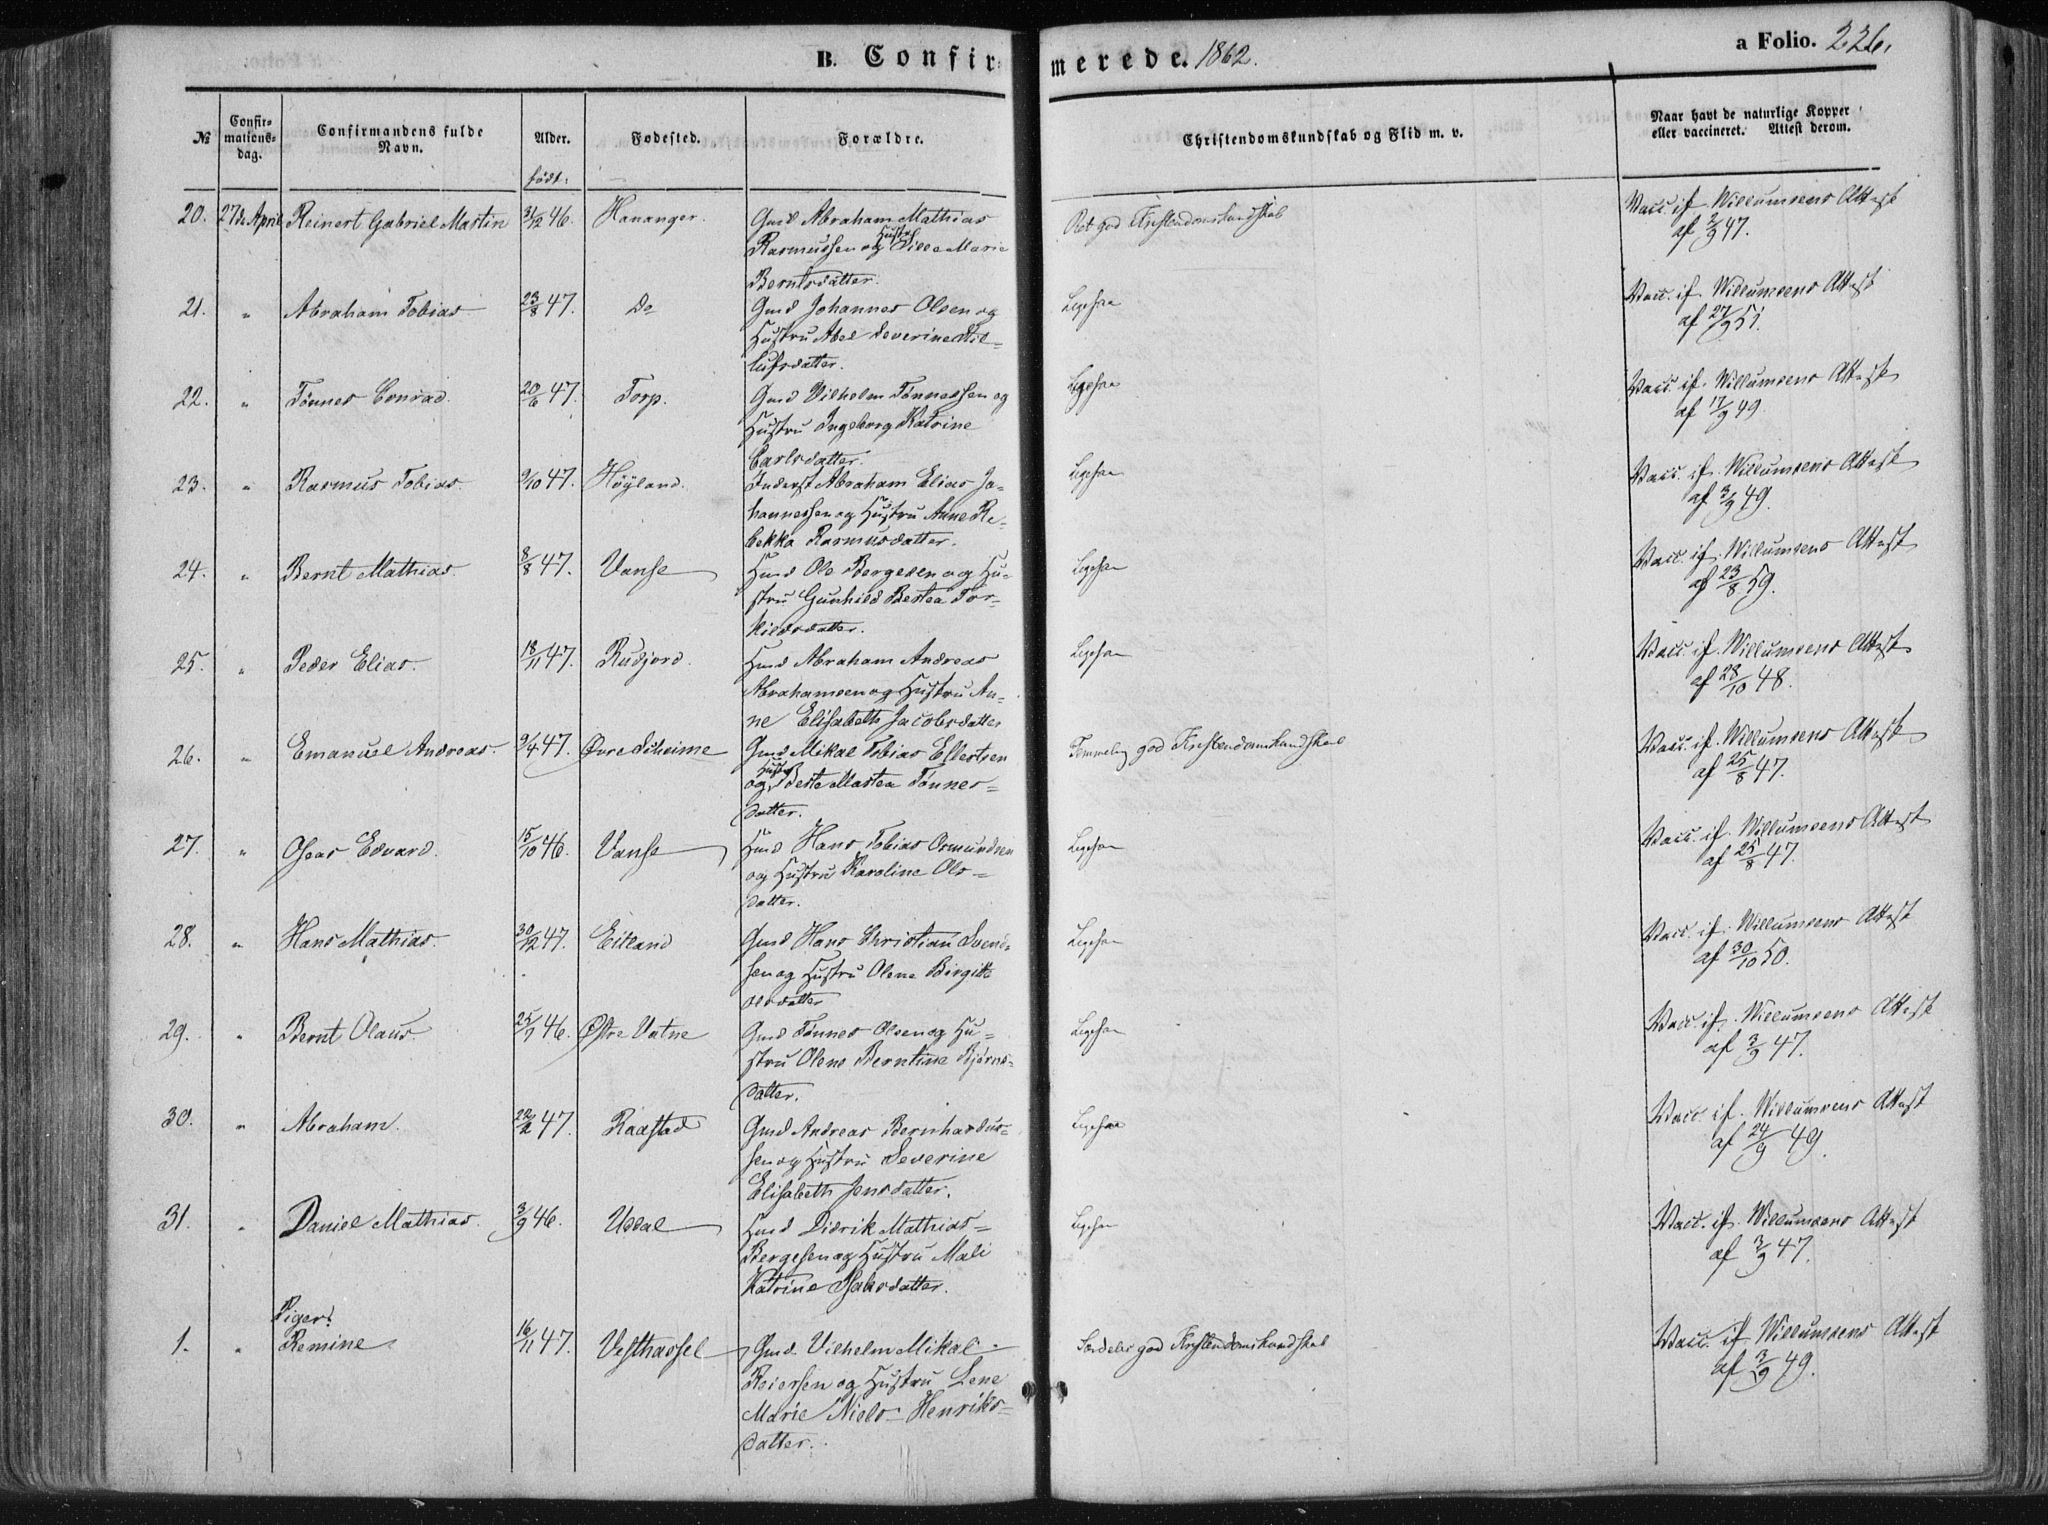 B. Confirmerede. 1862.
a Folio. 226.
№
Confirmationsdag.
Confirmandens fulde Navn.
Alder.
født:
Fødested.
Forældre.
Christendomskundskab og Flid m. v.
Naar havt de naturlige Kopper eller vaccineret. Attest derom.
20. 27de April Reinert Gabriel Martin 31/12 46. Hananger. Gmd Abraham Mathias Ret god Kristendomskundskab Vacc. if. Willumsens Attest
Rasmussen og Hustru Sille Marie af 2/9 47.
Berntsdatter.
21. " Abraham Tobias 23/8 47. Do Gmd Johannes Olsen og Ligesaa Vacc. if. Willumsens Attest
Hustru Abel Severine af 27/9 51.
lufsdatter.
22. " Tønnes Conrad. 20/6 47. Torp. Gmd Vilhelm Tønnessen og Ligesaa Vacc. if. Willumsens Attest
Hustru Ingeborg Katrine af 17/9 49.
Carlsdatter.
23. " Rasmus Tobias. 9/10 47. Høyland. Inderst Abraham Elias Jo- Ligesaa Vacc. if. Willumsens Attest
hannessen og Hustru Anne Re- af 3/9 49.
bekka Rasmusdatter.
24. " Bernt Mathias. 8/8 47. Vanse Hmd Ole Bergesen og Hu- Ligesaa Vacc. if. Willumsens Attest
stru Gunhild Bertea Tor- af 23/8 59.
kildsdatter.
25. " Peder Elias. 18/11 47. Rudjord. Hmd Abraham Andreas Ligesaa Vacc. if. Willumsens Attest
Abrahamsen og Hustru An- af 28/10 48.
ne Elisabeth Jacobsdatter
26. " Emanuel Andreas. 9/4 47. Øvre Gmd Mikal Tobias Ellertsen Temmelig god Kristendomskundskab Vacc. if. Willumsens Attest
og Hustru Berte Martea Tønnes= af 25/8 47.
datter.
27. " Oseas Edvard. 15/10 46. Vanse Hmd Hans Tobias Osmundsen Ligesaa Vacc. if. Willumsens Attest
og Hustru Karoline Ols= af 25/8 47.
datter.
28. " Hans Mathias. 30/12 47. Eitland Gmd Hans Christian Svend- Ligesaa Vacc. if. Willumsens Attest
sen og Hustru Olene Birgitte af 30/10 50.
olsdatter
29. " Bernt Olaus. 46. Østre Vatne Gmd Tønnes Olsen og Hu- Ligesaa Vacc. if. Willumsens Attest
stru Olene Berntine Bjørns- af 3/9 47.
datter.
30. " Abraham. 22/2 47. Raastad Gmd Andreas Bernhardus- Ligesaa Vacc. if. Willumsens Attest
sen og Hustru Severine af 24/9 49.
Elisabeth Jensdatter.
31. " Daniel Mathias. 3/9 46. Ussal Hmd Didrik Mathias= Ligesaa Vacc. if. Willumsens Attest
Bergesen og Hustru Mali af 3/9 47.
Katrine Isaksdatter.
Piger:
1. " Remine 16/11 47. Vesthassel Gmd. Vilhelm Mikal Særdeles god Kristendomskundskab Vacc. if Willumsens Attest
Reiersen og Hustru Lene af 3/9 49.
Marie Niels-Henriks=
datter.